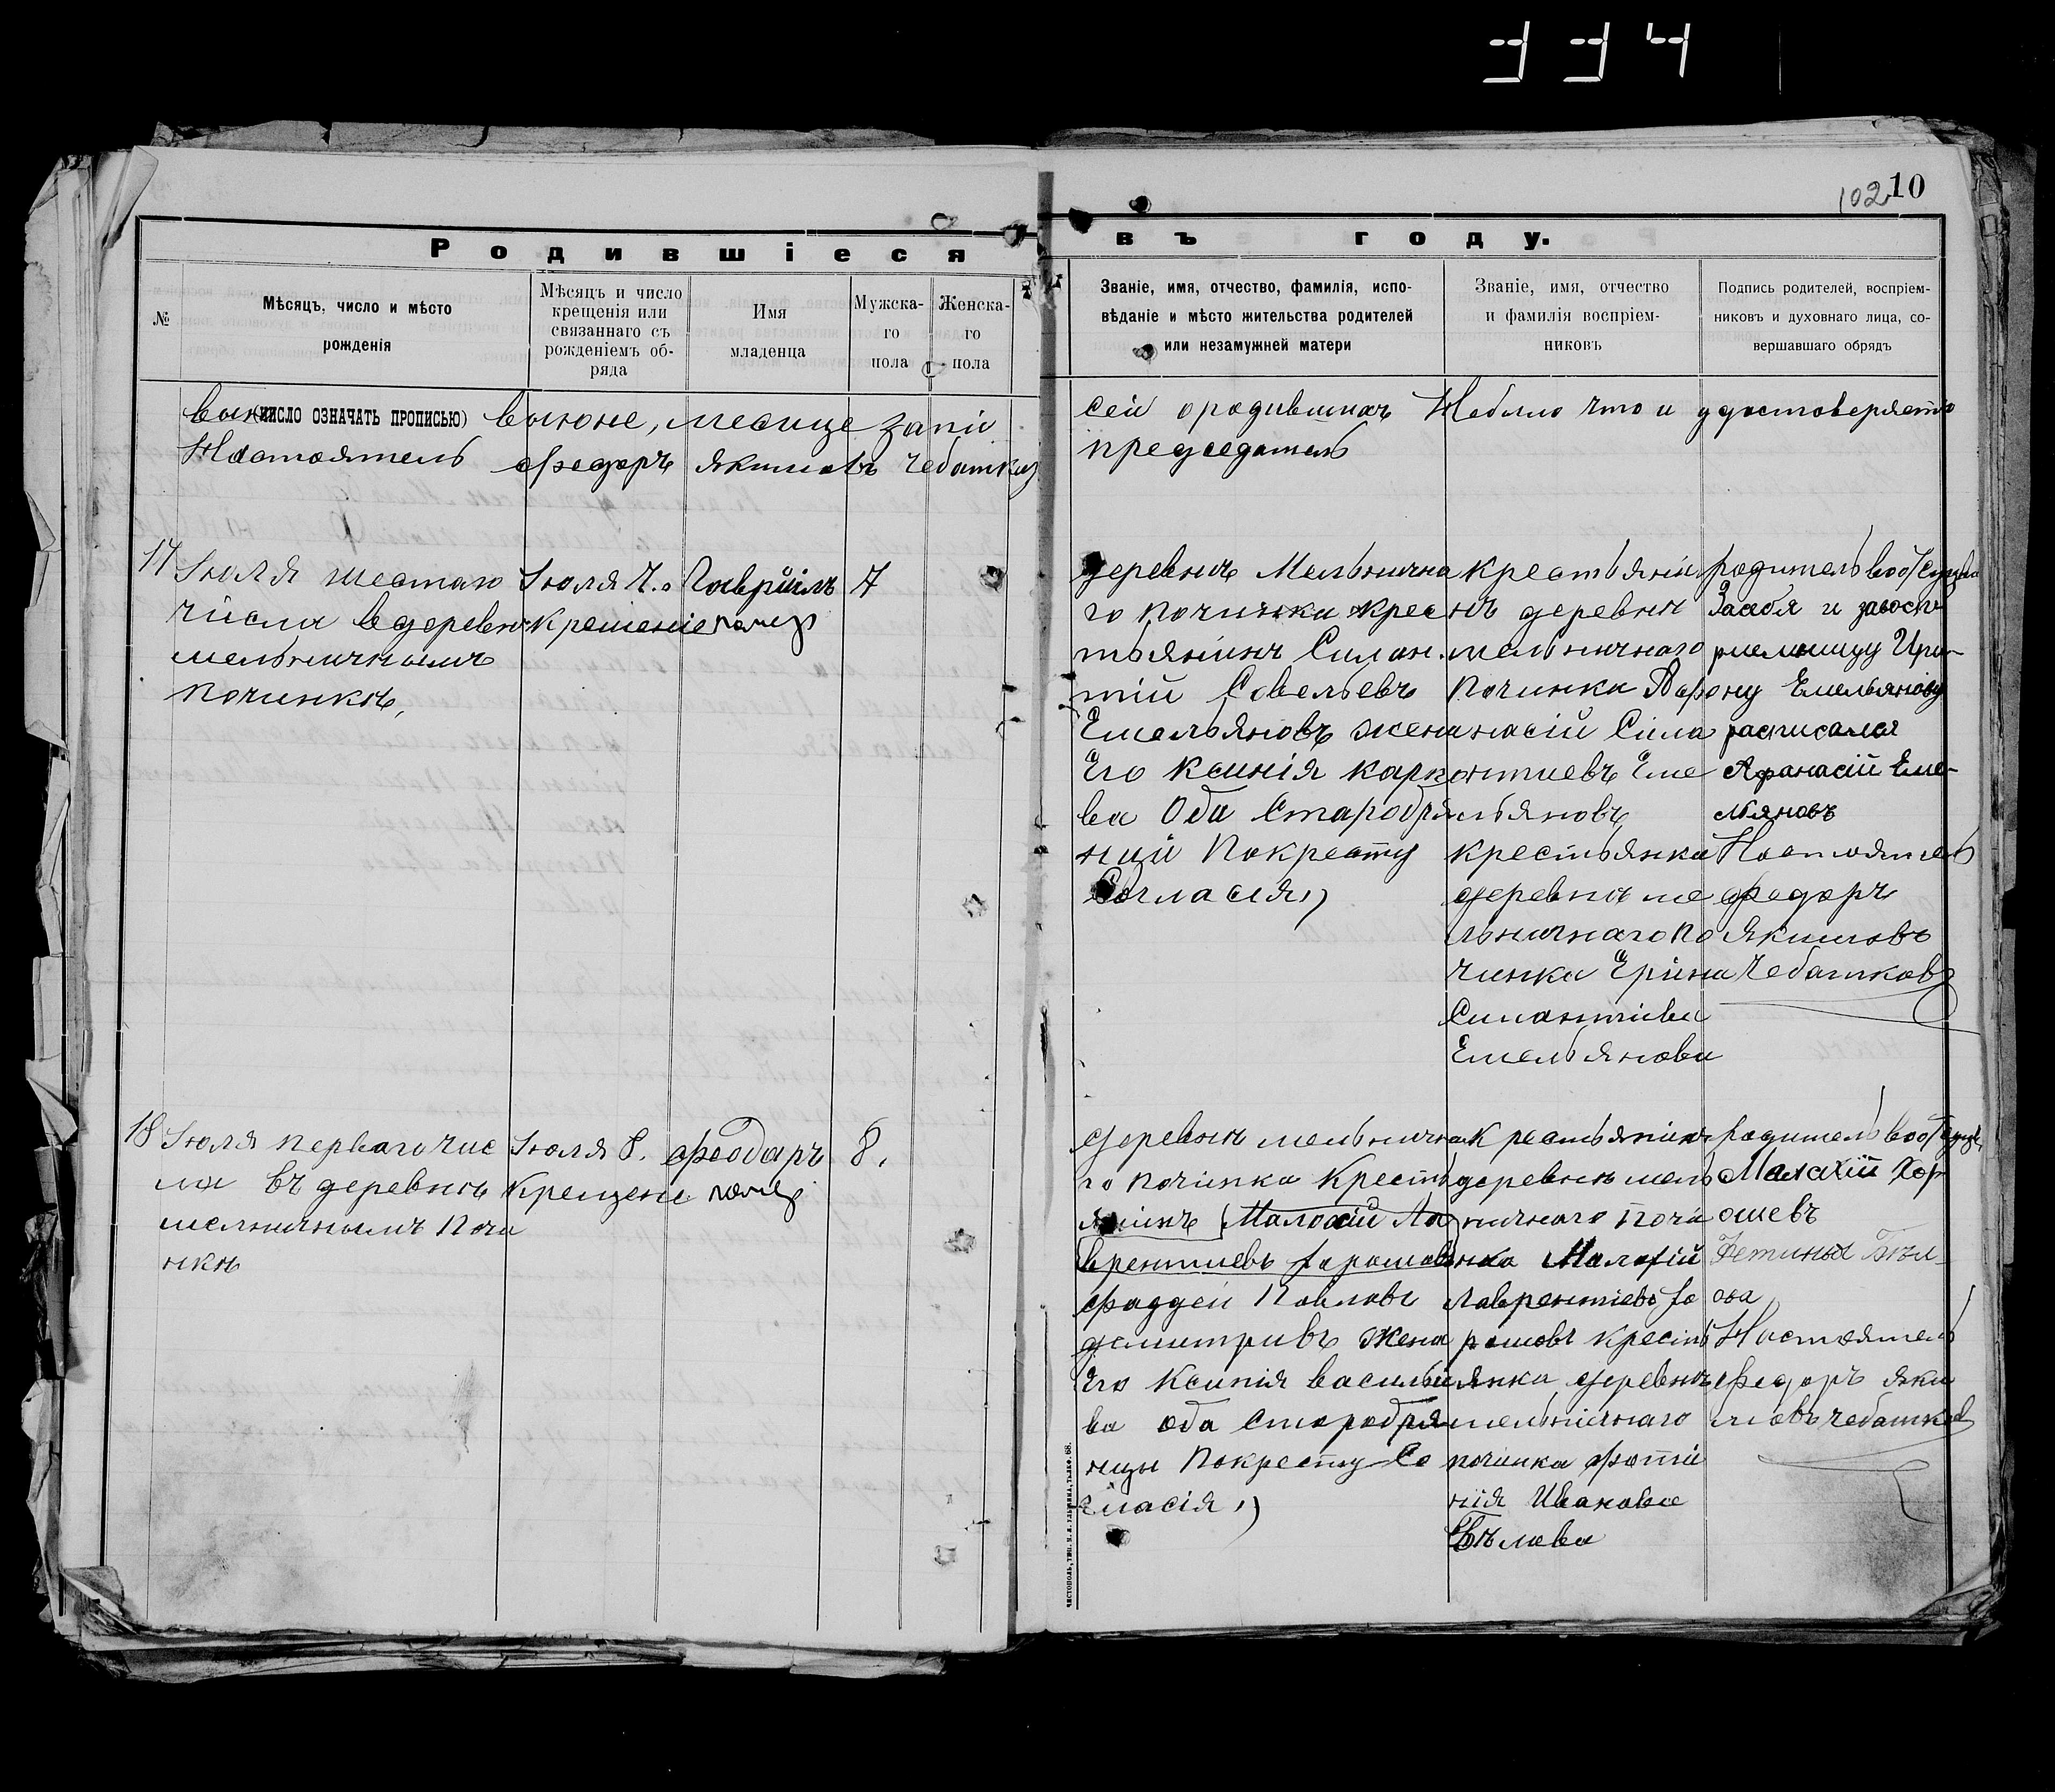 334
102
10
Родившіеся
въ году.
№
Мѣсяцъ, число и мѣсто
рожденія
Мѣсяцъ и число
крещенія или
связаннаго съ
рожденіемъ об-
ряда
Имя
младенца
Мужска-
го
пола
Женска-
го
пола
Званіе, имя, отчество, фамилія, испо-
вѣданіе и мѣсто жительства родителей
или незамужней матери
Званіе, имя, отчество
и фамилія воспріем-
никовъ
Подпись родителей, воспріем-
никовъ и духовнаго лица, со-
вершавшаго обрядъ
(число означать прописью) выюне, месице запи
Настоятель федоръ якимовъ Чебатков
сей ородившихъ Небыло что и удостоверяетъ
председатель
17
Июля шестаго
числа вдеревне
мельничнымъ
починкъ,
Июля 7.
крешеніе
Гаврӥилъ
7
деревнъ Мельнична
го починка крес
тьянинъ Силан
тій Савельевъ
Емельяновъ жена
Его Ксинія карпо
ва Оба Старобря
нцй Покресту
Согласия,
крестьяни
нъ деревнъ
мельничнаго
Починка Афо
насій Сила
нтиевъ Еме
льяновъ
крестьянка
деревнъ ме
льничнаго по
чинка Ерина
Силантиева
Емельянова
родитель
Засебя и завосп-
риемницу Ири-
ну Емельянову
расписался
Афанасій Еме-
льяновъ
Настоятель
федоръ
Якимовъ
Чебатковъ
18
Июля перваго чис
ла въ деревнъ
мелничнымъ Почи
нкъ
Июля 8.
Крещение
феодаръ
8.
деревнъ мельнична
го починка Кресть
янинъ Малофий Ла
врентиевъ
фаддей Павловъ
димитривъ жена
Его Ксинія васильи
ва оба старобря
нцы Покресту Со
гласія,
крестьянинъ
деревнъ мель
ничнаго Почи
нка Малофій
Лаврентіевъ Хо
рошовъ кресть
янка деревнъ
мельничнаго
починка фоти
нія Иванова
Бълова
родитель
Малахій Хор
ошевъ
Фетинья Бъл-
ова
Настоятель
Федоръ яки
мовъ чебатков
ЧИСТОПОЛЬ,